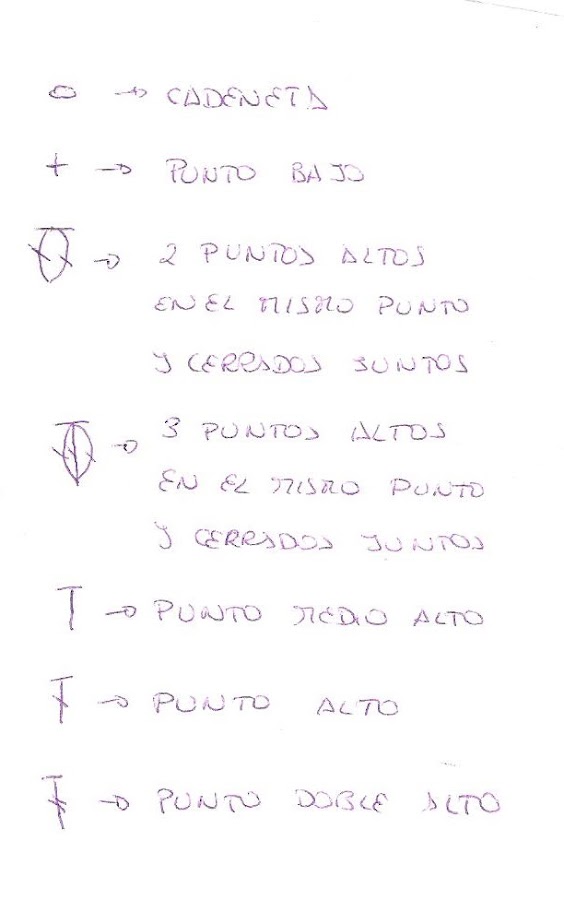 → CADENETA
+ → PUNTO BAJO
→ 2 PUNTOS ALTOS
EN EL MISMO PUNTO
Y CERRADOS JUNTOS
→ 3 PUNTOS ALTOS
EN EL MISMO PUNTO
Y CERRADOS JUNTOS
→ PUNTO MEDIO ALTO
→ PUNTO ALTO
→ PUNTO DOBLE ALTO